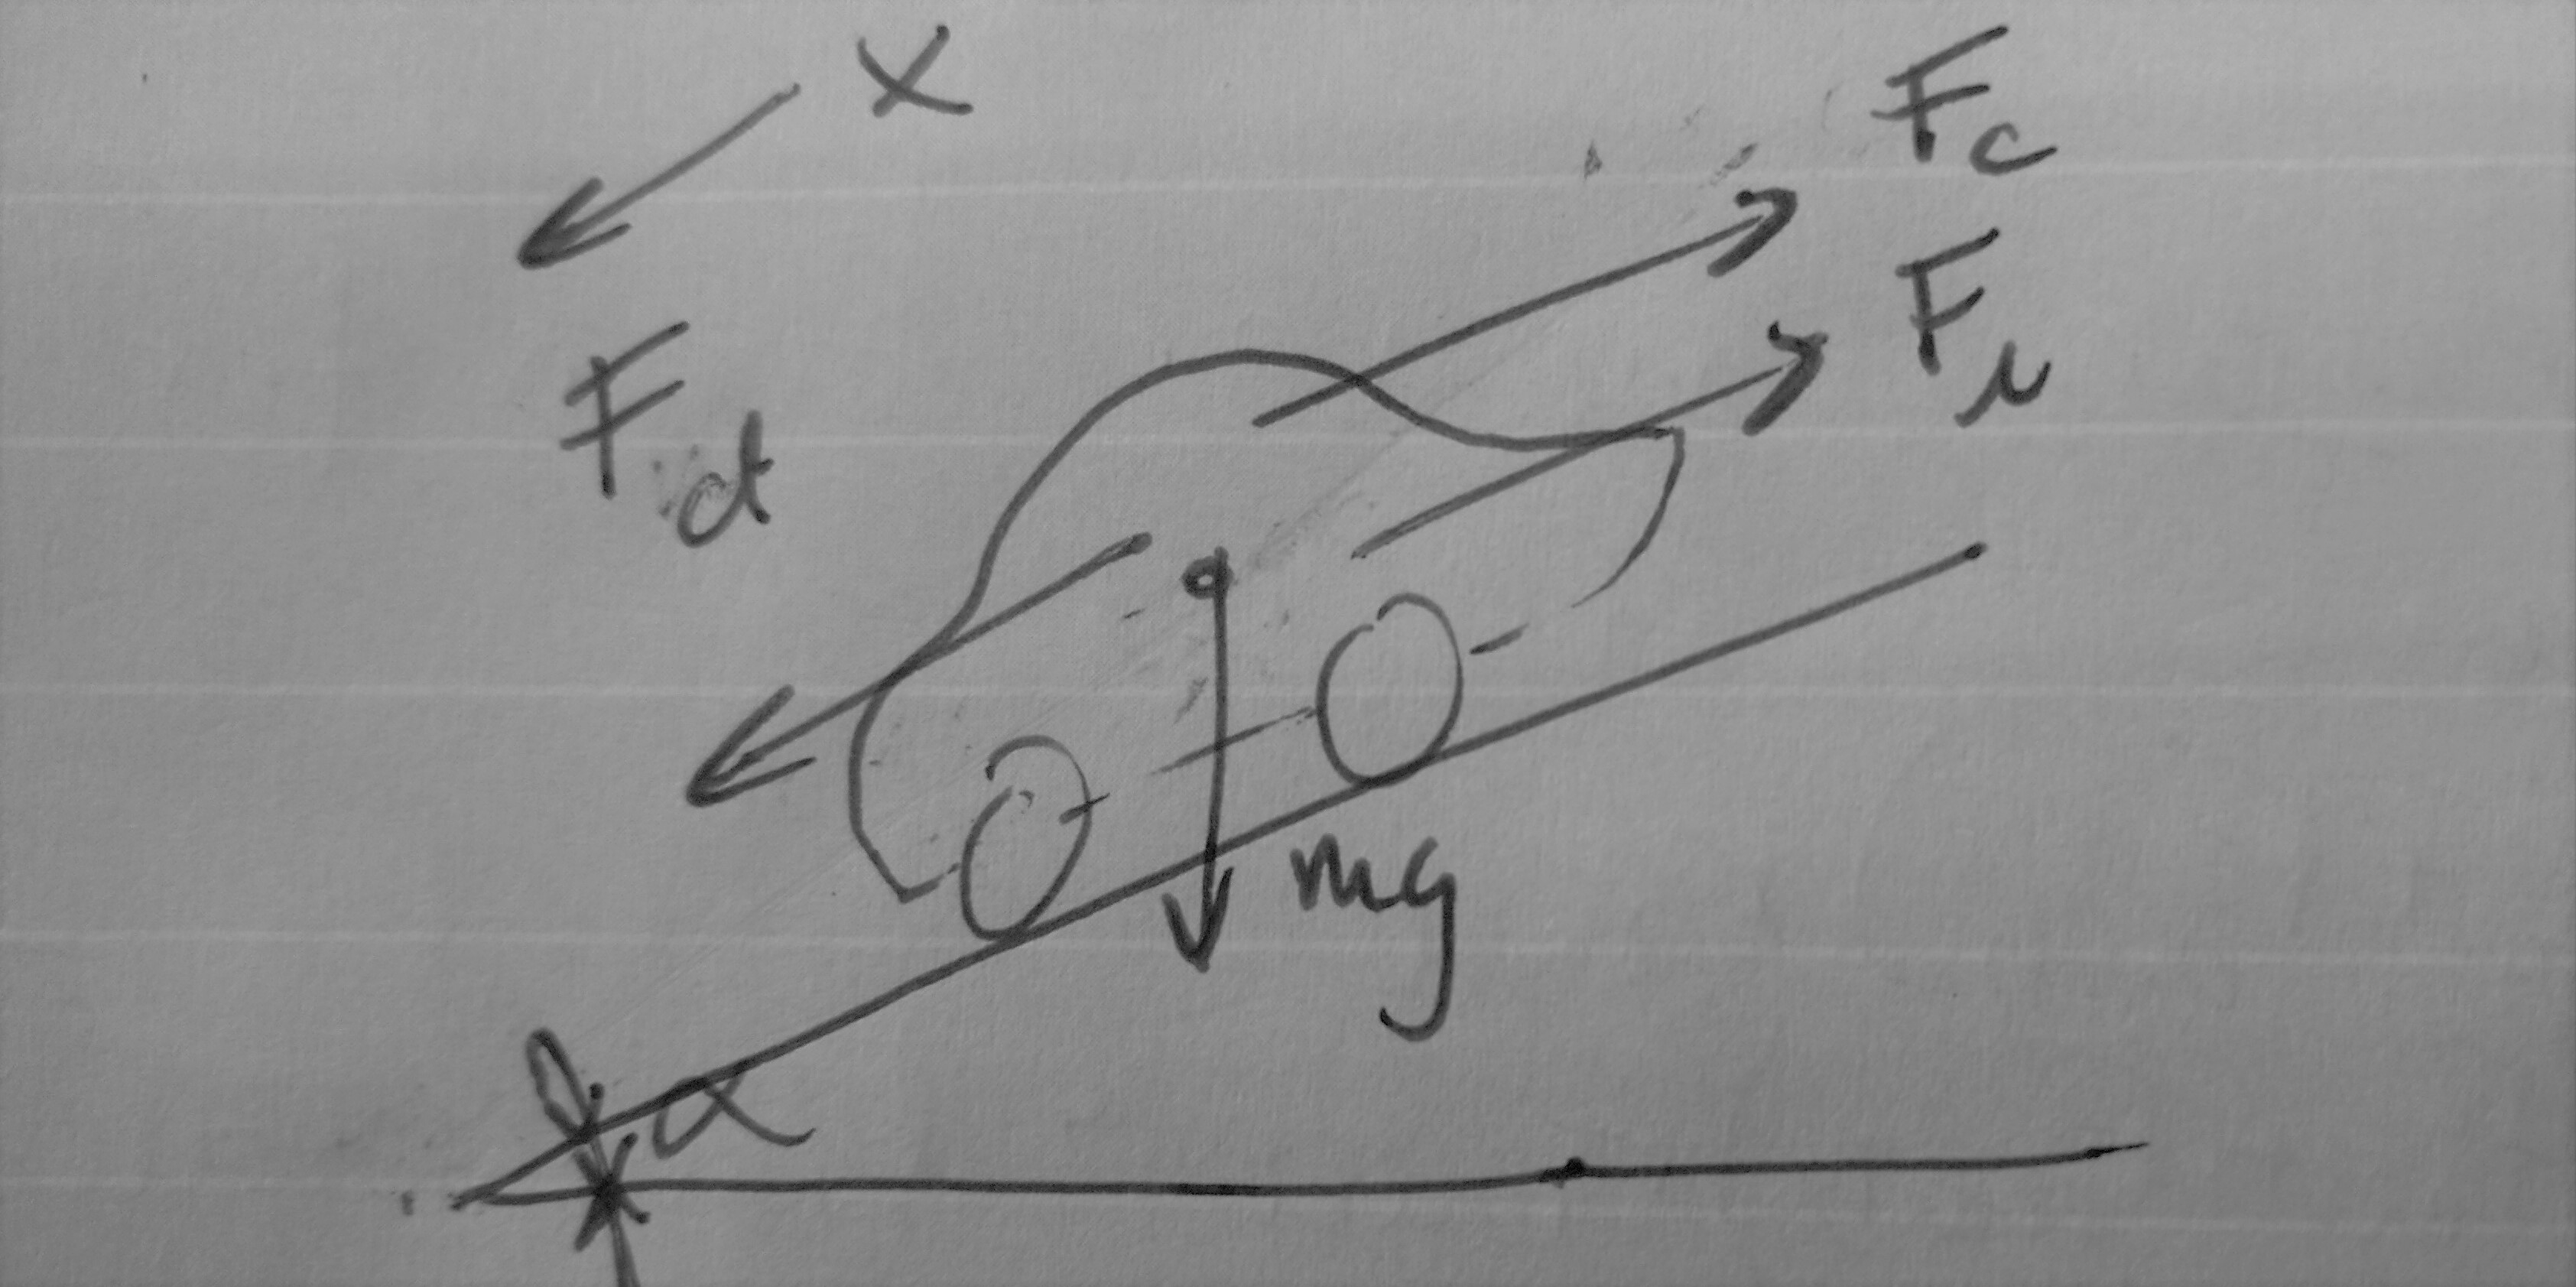 x
F_c
F_r
F_d
mg
α